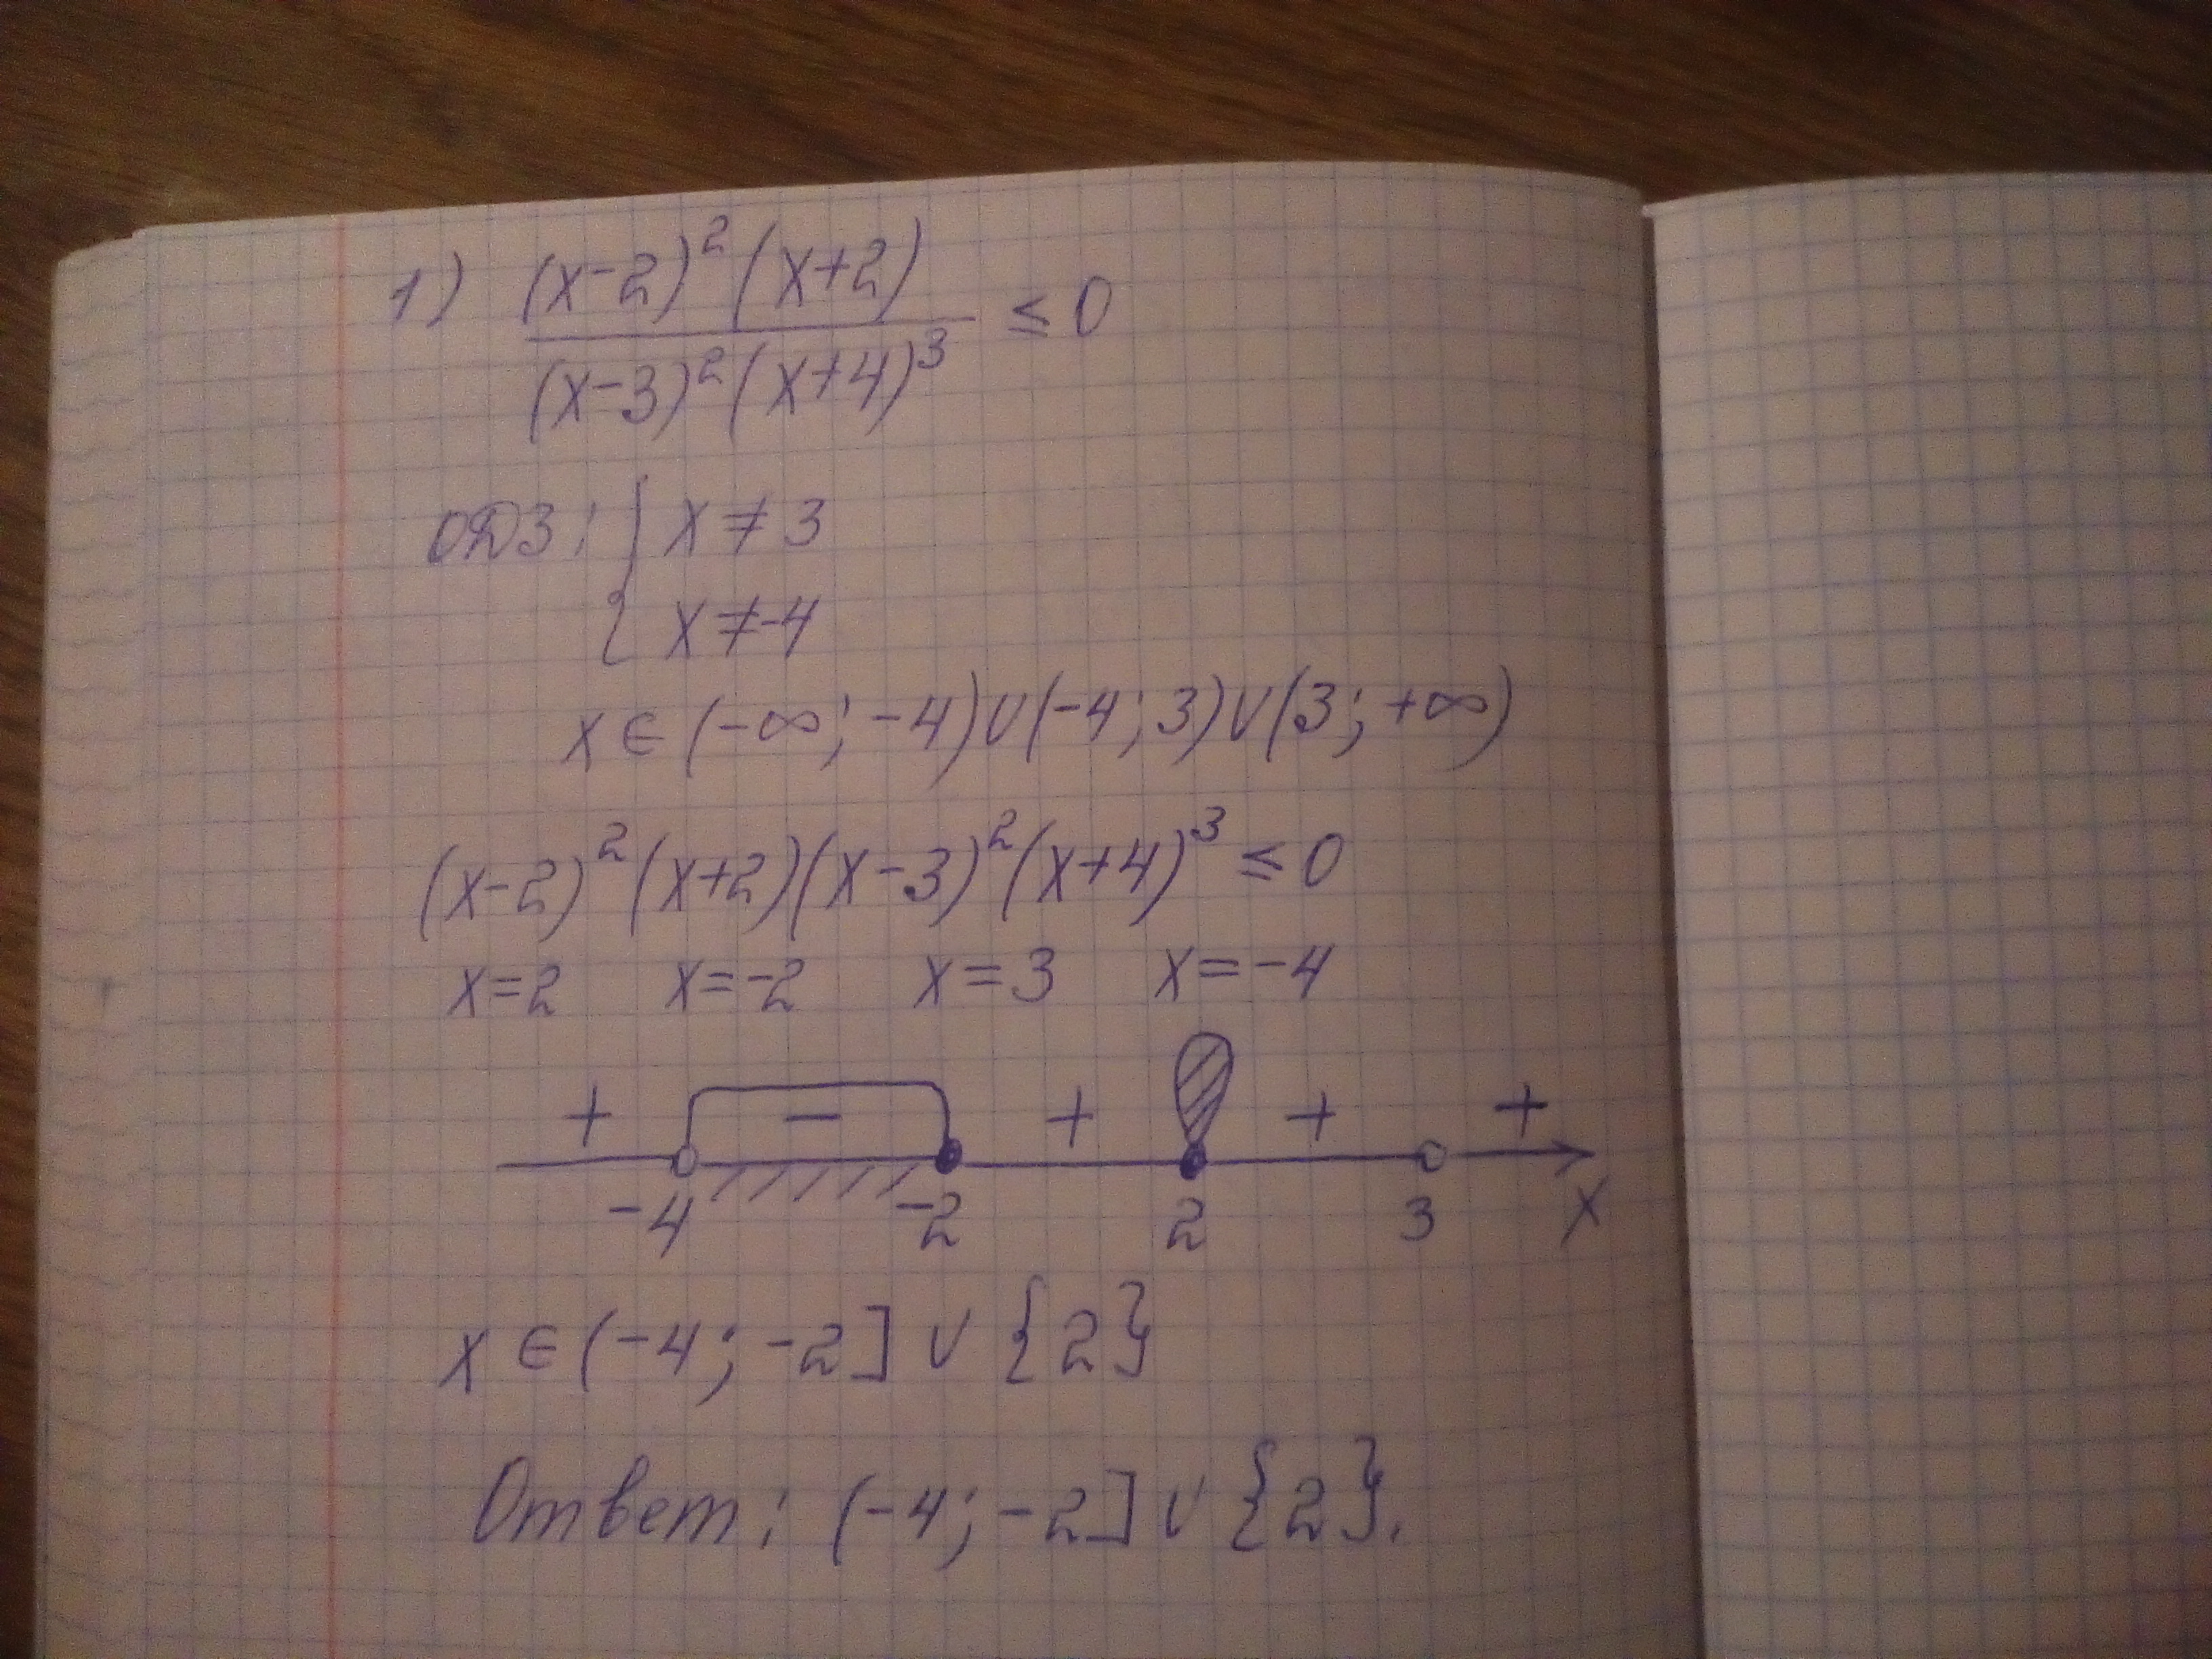 1) (x-2)²(x+2)
(x-3)²(x+4)³ ≤ 0
ОДЗ: { x ≠ 3
x ≠ -4
x ∈ (-∞; -4)∪(-4; 3)∪(3; +∞)
(x-2)²(x+2)(x-3)²(x+4)³ ≤ 0
x=2 x=-2 x=3 x=-4
+ − + + +
-4 -2 2 3 x
x ∈ (-4; -2] ∪ {2}
Ответ: (-4; -2] ∪ {2}.